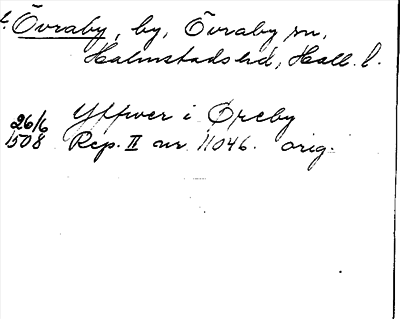 t. Övraby, by, Övraby sn,
Halmstads hd, Hall. l.
26/6 Yffwer i Øreby
1508 Rep. II nr 11046. orig.